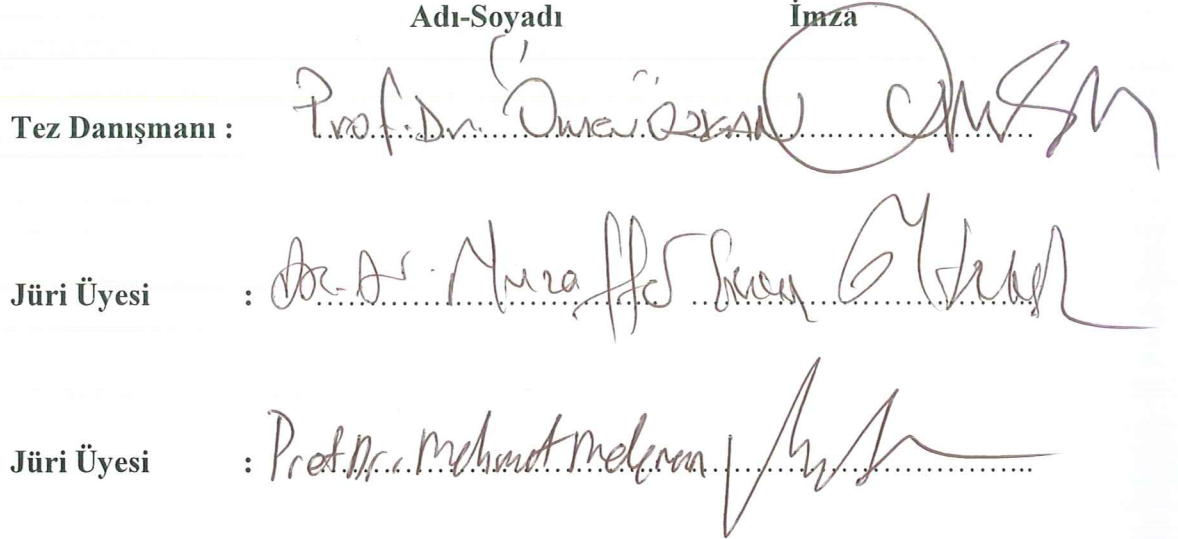 Adı-Soyadı İmza
Tez Danışmanı : Prof. Dr. Ömer ÖZKAN
Jüri Üyesi : Muzaffer
Jüri Üyesi : Prof. Dr. Mehmet